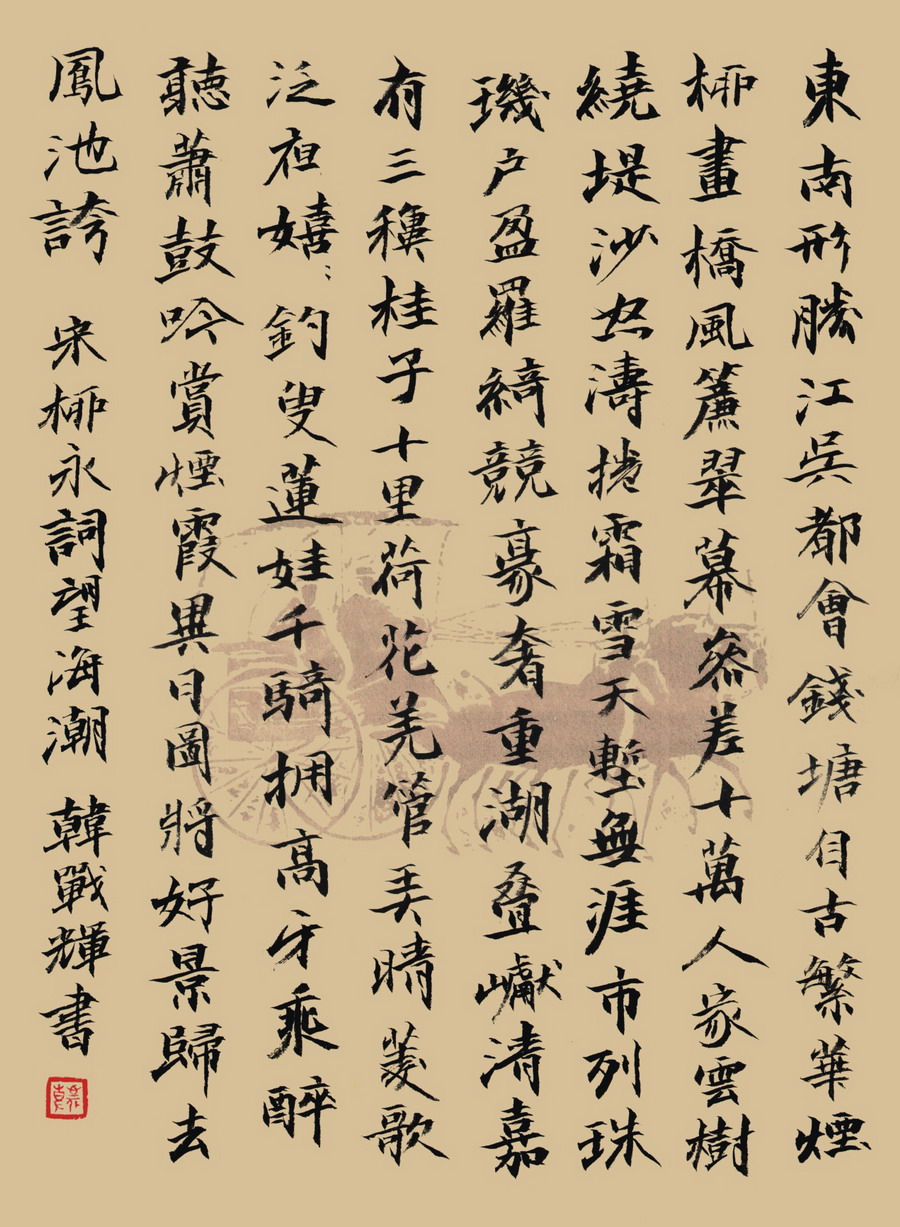 東南形勝江吳都會錢塘自古繁華煙
栁畫橋風簾翠幕叅差十萬人家雲樹
繞堤沙怒濤捲霜雪天塹無涯市列珠
璣户盈羅綺競豪奢重湖疊巘清嘉
有三秋桂子十里荷花羌管弄晴菱歌
泛夜嬉〻釣叟蓮娃千騎拥高牙乘醉
聽蕭鼓吟賞煙霞異日圖將好景歸去
鳳池誇 宋栁永詞望海潮 韓戰輝書